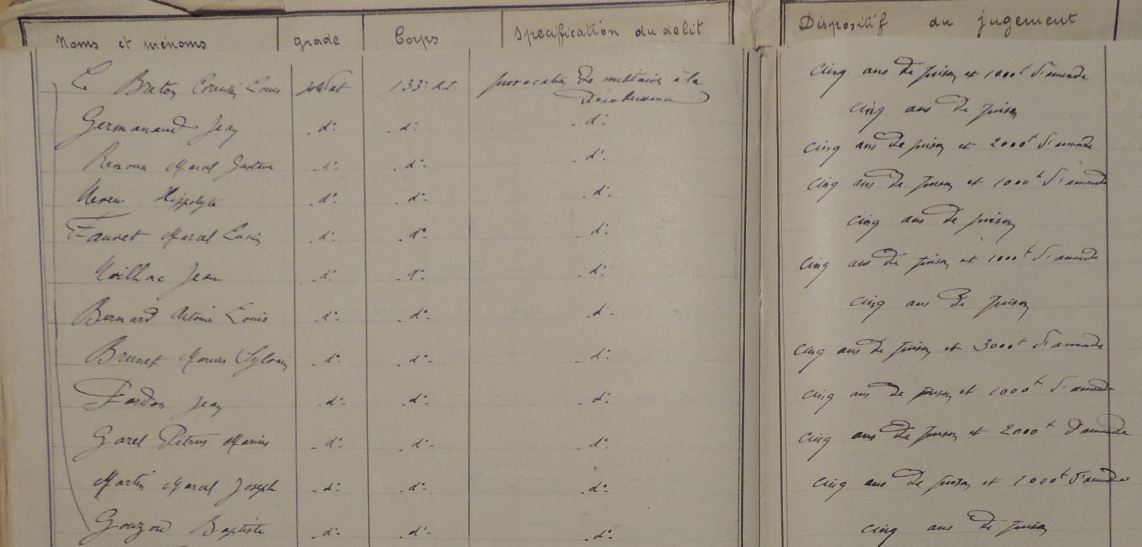 Noms et prénoms grade Corps Specification du delit Dispositif du jugement
Le Breton Corentin Louis soldat 133e R.I. provocation de militaires à la cinq ans de prison et 1000f d'amende
désobéissance
Germanaud Jean d°- d°- d°- cinq ans de prison
Renoux Marcel Gustave d°- d°- d°- cinq ans de prison et 2000f d'amende
Hippolyte d°- d°- d°- cinq ans de prison et 1000f d'amende
Fauvet Marcel Lucien d°- d°- d°- cinq ans de prison
Jean d°- d°- d°- cinq ans de prison et 1000f d'amende
Bernard Antoine Louis d°- d°- d°- cinq ans de prison
Brunet Sylvain d°- d°- d°- cinq ans de prison et 3000f d'amende
Jean d°- d°- d°- cinq ans de prison et 1000f d'amende
Garel Pétrus Marius d°- d°- d°- cinq ans de prison et 2000f d'amende
Martin Marcel Joseph d°- d°- d°- cinq ans de prison et 1000f d'amende
Gouzon Baptiste d°- d°- d°- cinq ans de prison